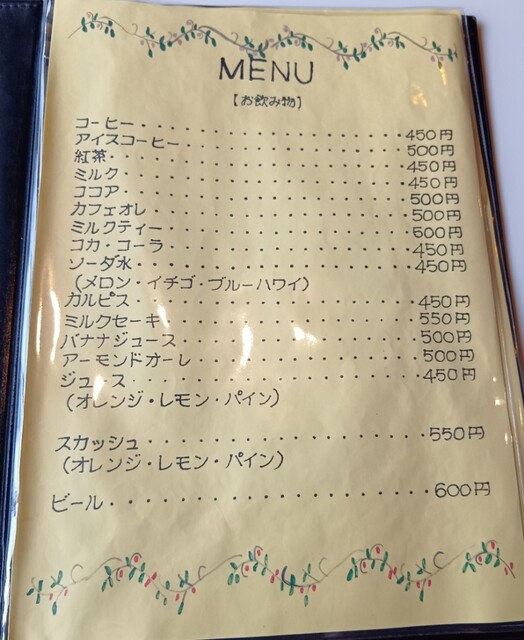 MENU
【お飲み物】
コーヒー・・・・・・・・・・・・・・・・・450円
アイスコーヒー・・・・・・・・・・・・・・500円
紅茶・・・・・・・・・・・・・・・・・・・450円
ミルク・・・・・・・・・・・・・・・・・・450円
ココア・・・・・・・・・・・・・・・・・・500円
カフェオレ・・・・・・・・・・・・・・・・500円
ミルクティー・・・・・・・・・・・・・・・500円
コカ・コーラ・・・・・・・・・・・・・・・450円
ソーダ水・・・・・・・・・・・・・・・・・450円
(メロン・イチゴ・ブルーハワイ)
カルピス・・・・・・・・・・・・・・・・・450円
ミルクセーキ・・・・・・・・・・・・・・・550円
バナナジュース・・・・・・・・・・・・・・500円
アーモンドオーレ・・・・・・・・・・・・・500円
ジュース・・・・・・・・・・・・・・・・・450円
(オレンジ・レモン・パイン)
スカッシュ・・・・・・・・・・・・・・・・550円
(オレンジ・レモン・パイン)
ビール・・・・・・・・・・・・・・・・・・600円